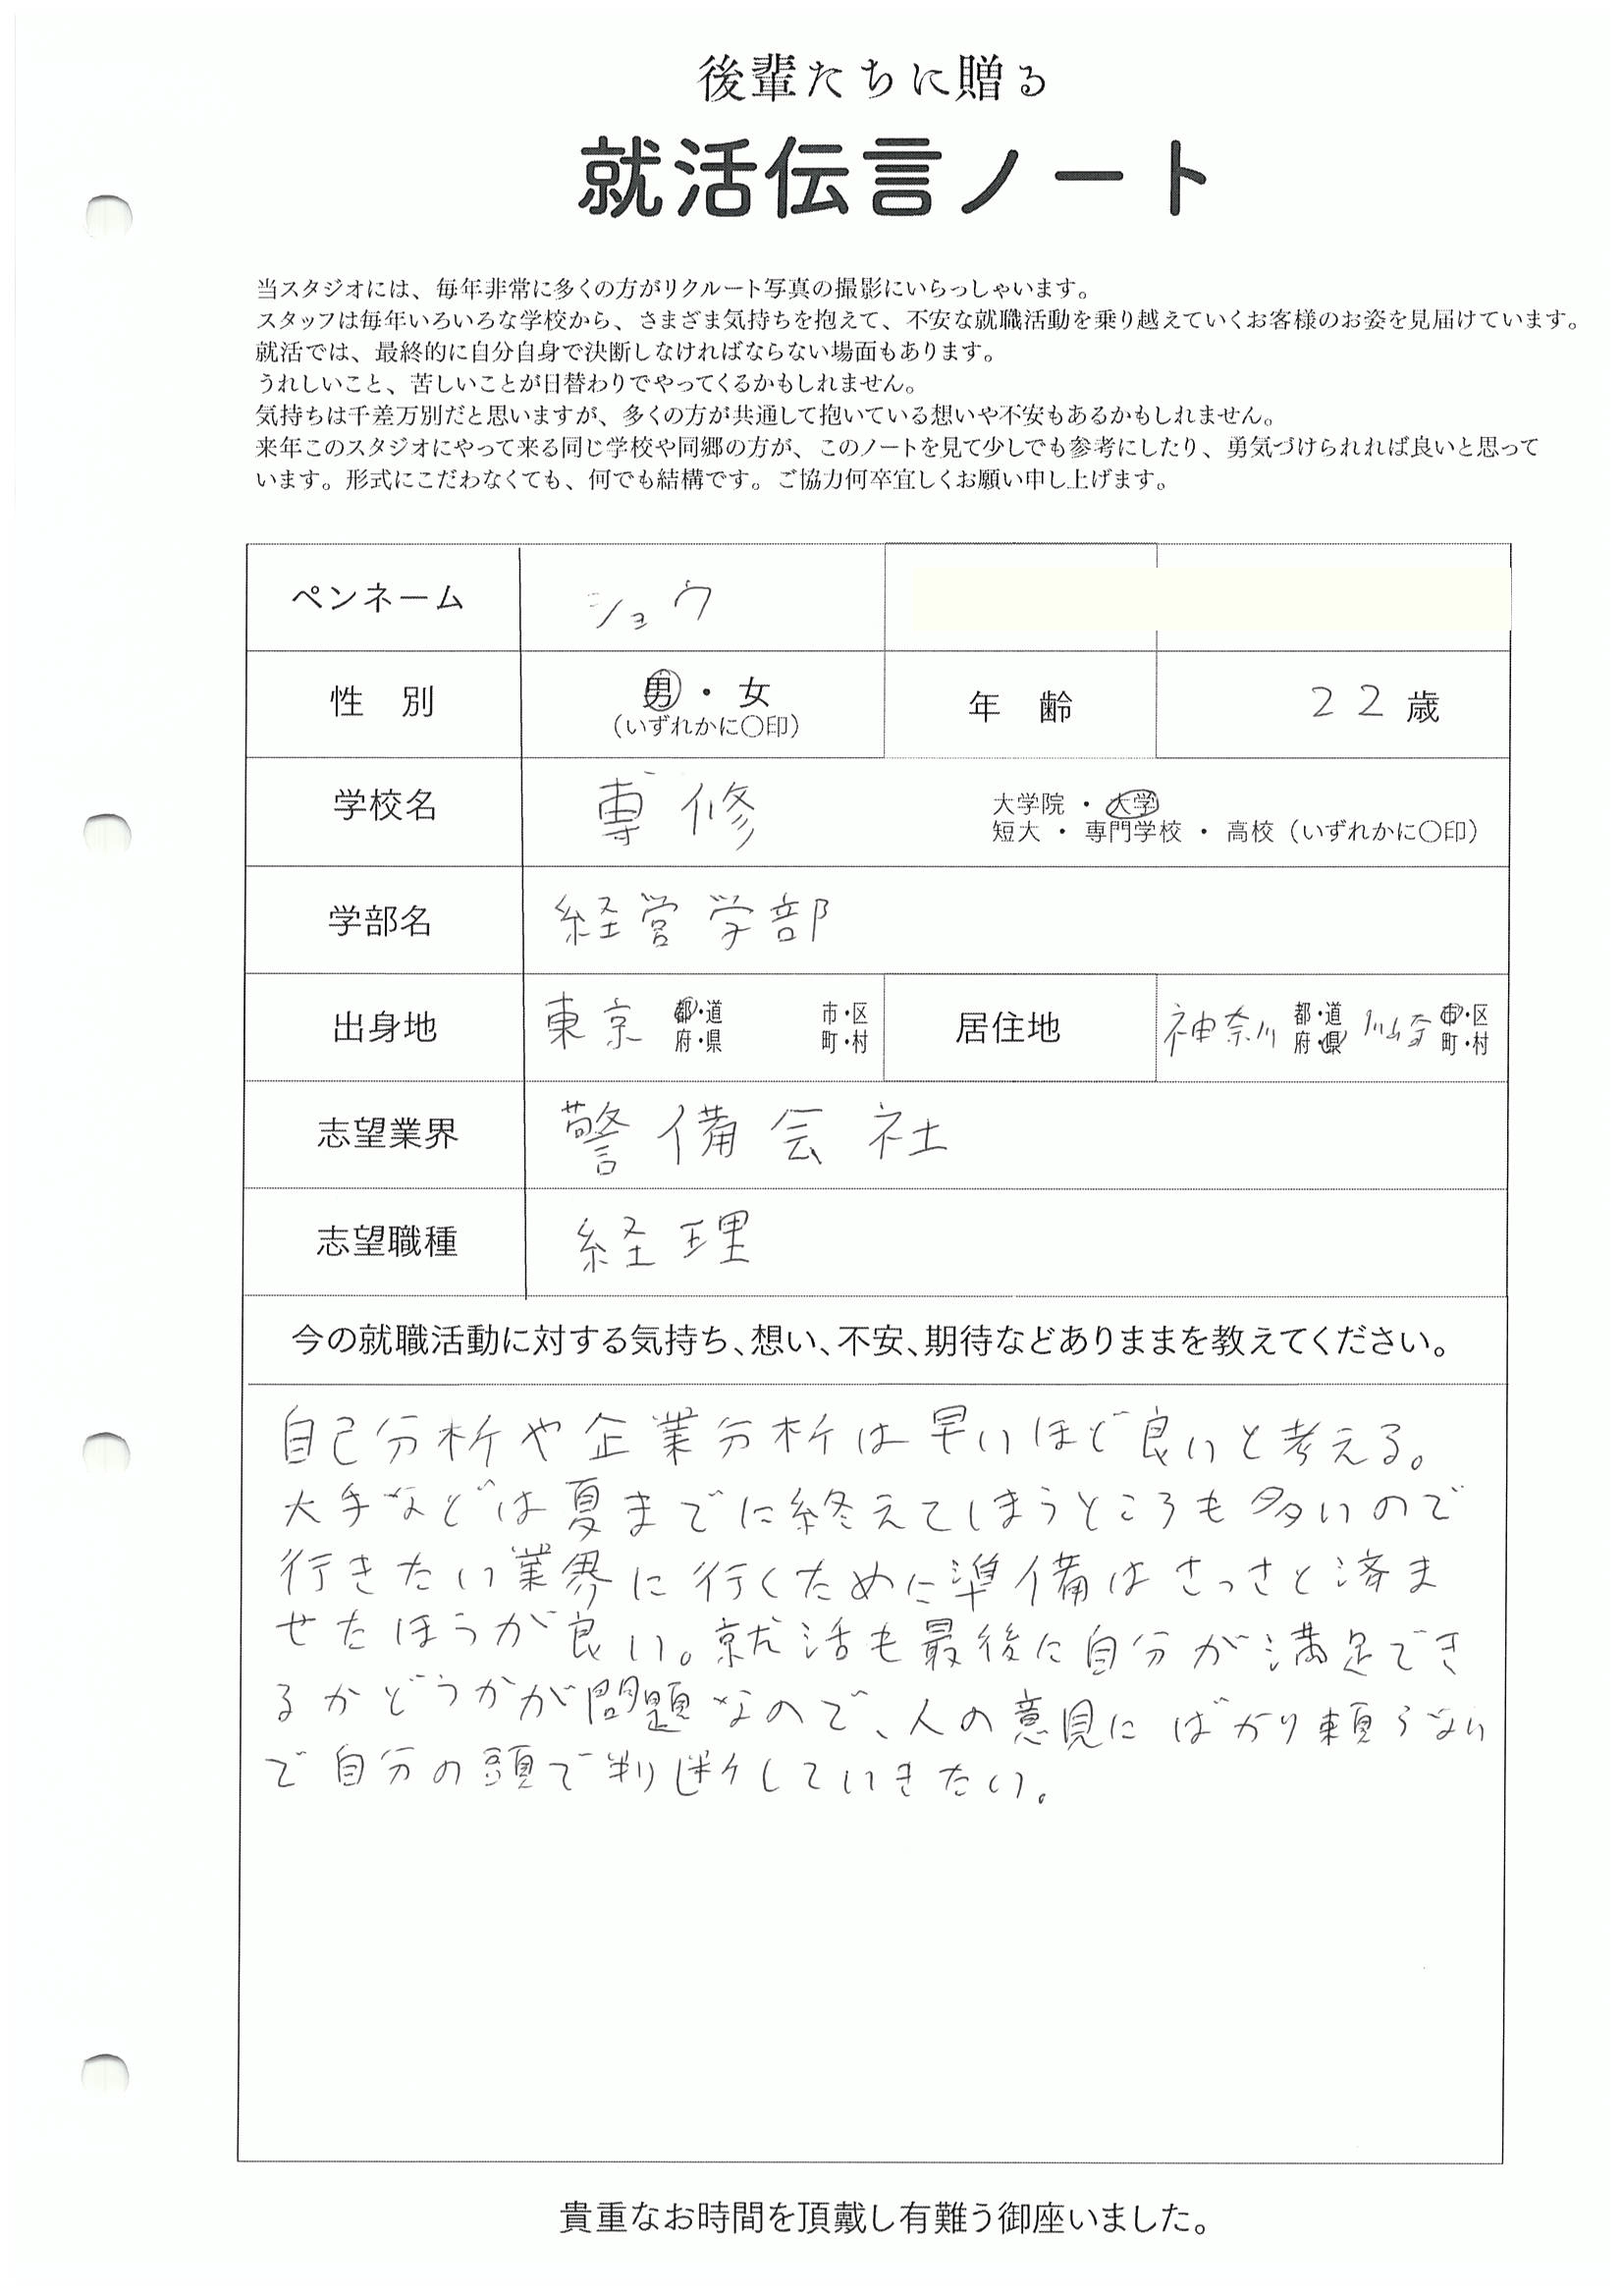 後輩たちに贈る
就活伝言ノート
当スタジオには、毎年非常に多くの方がリクルート写真の撮影にいらっしゃいます。
スタッフは毎年いろいろな学校から、さまざま気持ちを抱えて、不安な就職活動を乗り越えていくお客様のお姿を見届けています。
就活では、最終的に自分自身で決断しなければならない場面もあります。
うれしいこと、苦しいことが日替わりでやってくるかもしれません。
気持ちは千差万別だと思いますが、多くの方が共通して抱いている想いや不安もあるかもしれません。
来年このスタジオにやって来る同じ学校や同郷の方が、このノートを見て少しでも参考にしたり、勇気づけられれば良いと思って
います。形式にこだわなくても、何でも結構です。ご協力何卒宜しくお願い申し上げます。
ペンネーム ショウ
性 別 男・女 年 齢 22歳
(いずれかに〇印)
学校名 専修 大学院・大学
短大・専門学校・高校(いずれかに〇印)
学部名 経営学部
出身地 東京 都・道 市・区 居住地 神奈川 都・道 川崎 市・区
府・県 町・村 府・県 町・村
志望業界 警備会社
志望職種 経理
今の就職活動に対する気持ち、想い、不安、期待などありままを教えてください。
自己分析や企業分析は早いほど良いと考える。
大手などは夏までに終えてしまうところも多いので
行きたい業界に行くために準備はさっさと済ま
せたほうが良い。就活も最後に自分が満足でき
るかどうかが問題なので、人の意見にばかり頼らない
で自分の頭で判断していきたい。
貴重なお時間を頂戴し有難う御座いました。